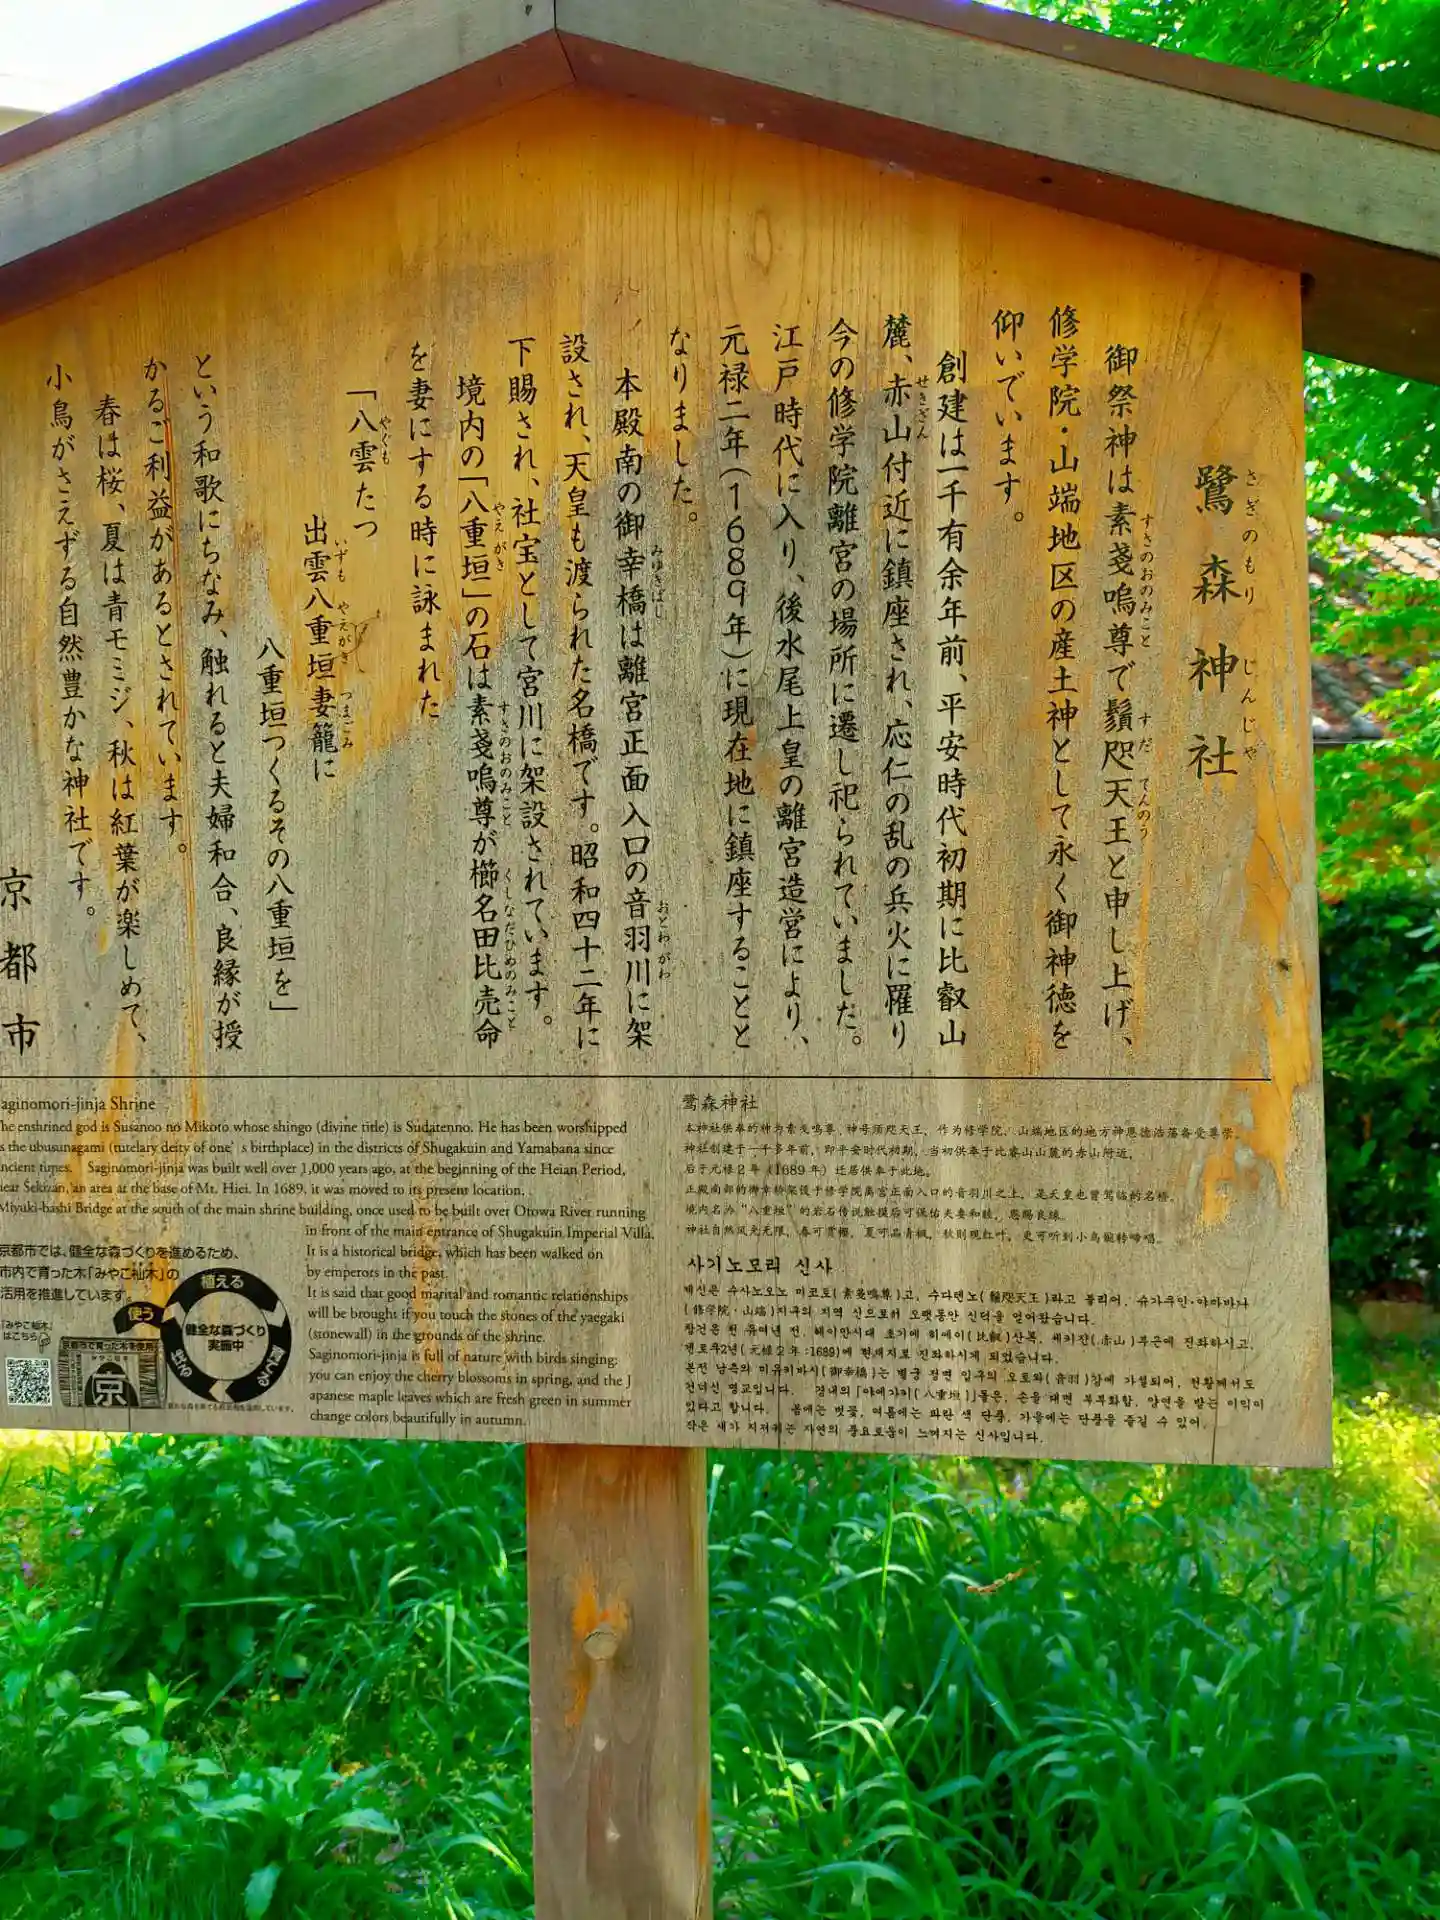 鷺森神社
さぎのもりじんじゃ
御祭神は素戔嗚尊で鬚咫天王と申し上げ、
修学院・山端地区の産土神として永く御神徳を
仰いでいます。
創建は一千有余年前、平安時代初期に比叡山
麓、赤山付近に鎮座され、応仁の乱の兵火に罹り
今の修学院離宮の場所に遷し祀られていましだ。
江戸時代に入り、後水尾上皇の離宮造営により、
元禄二年(1689年)に現在地に鎮座することと
なりました。
本殿南の御幸橋は離宮正面入口の音羽川に架
設され、天皇も渡られた名橋です。昭和四十二年に
下賜され、社宝として宮川に架設されています。
境内の「八重垣」の石は素戔嗚尊が櫛名田比売命
を妻にする時に詠まれた
「八雲たつ
出雲八重垣妻籠に
八重垣つくるその八重垣を」
という和歌にちなみ、触れると夫婦和合、良縁が授
かるご利益があるとされています。
春は桜、夏は青モミジ、秋は紅葉が楽しめて、
小鳥がさえずる自然豊かな神社です。
京都市
aginomori-jinja Shrine
he enshrined god is Susanoo no Mikoto whose shingo (divine title) is Sudatenno. He has been worshipped
s the ubusunagami (tutelary deity of one's birthplace) in the districts of Shugakuin and Yamabana since
ncient times. Saginomori-jinja was built well over 1,000 years ago, at the beginning of the Heian Period,
near Sekizan, an area at the base of Mt. Hiei. In 1689, it was moved to its present location.
Miyuki-bashi Bridge at the south of the main shrine building, once used to be built over Otowa River running
in front of the main entrance of Shugakuin Imperial Villa.
It is a historical bridge, which has been walked on
by emperors in the past.
It is said that good marital and romantic relationships
will be brought if you touch the stones of the yaegaki
(stonewall) in the grounds of the shrine.
Saginomori-jinja is full of nature with birds singing;
you can enjoy the cherry blossoms in spring, and the J
apanese maple leaves which are fresh green in summer
change colors beautifully in autumn.
京都市では、健全な森づくりを進めるため、
市内で育った木「みやこ杣木」の
活用を推進しています。
「みやこ杣木」
はこちら
植える
使う
育てる
伐る
健全な森づくり
実施中
京都市で育った木を使用
みやこ杣木
京
鹭森神社
本神社供奉的神为素戋鸣尊,神号须咫天王,作为修学院、山端地区的地方神恩德浩荡备受尊崇。
神社创建于一千多年前,即平安时代初期,当初供奉于比睿山山麓的赤山附近,
后于元禄2年(1689年)迁居供奉于此地。
正殿南部的御幸桥架设于修学院离宫正面入口的音羽川之上,是天皇也曾驾临的名桥。
境内名为“八重垣”的岩石传说触摸后可保佑夫妻和睦,恩赐良缘。
神社自然风光无限,春可赏樱,夏可品青枫,秋则观红叶,更可听到小鸟婉转啼唱。
사기노모리 신사
제신은 수사노오노 미코토(素戔嗚尊)고, 수다텐노(鬚咫天王)라고 불리어, 슈가쿠인·야마바나
(修学院·山端)지구의 지역 신으로서 오랫동안 신덕을 얻어왔습니다.
창건은 천 유여년 전, 헤이안시대 초기에 히에이(比叡)산록, 세키잔(赤山)부근에 진좌하시고,
겐로쿠2년(元禄2年:1689)에 현재지로 진좌하시게 되었습니다.
본전 남측의 미유키바시(御幸橋)는 별궁 정면 입구의 오토와(音羽)강에 가설되어, 천황께서도
건너신 명교입니다. 경내의「야에가키(八重垣)」돌은, 손을 대면 부부화합, 양연을 받는 이익이
있다고 합니다. 봄에는 벚꽃, 여름에는 파란 색 단풍, 가을에는 단풍을 즐길 수 있어,
작은 새가 지저귀는 자연의 풍요로움이 느껴지는 신사입니다.